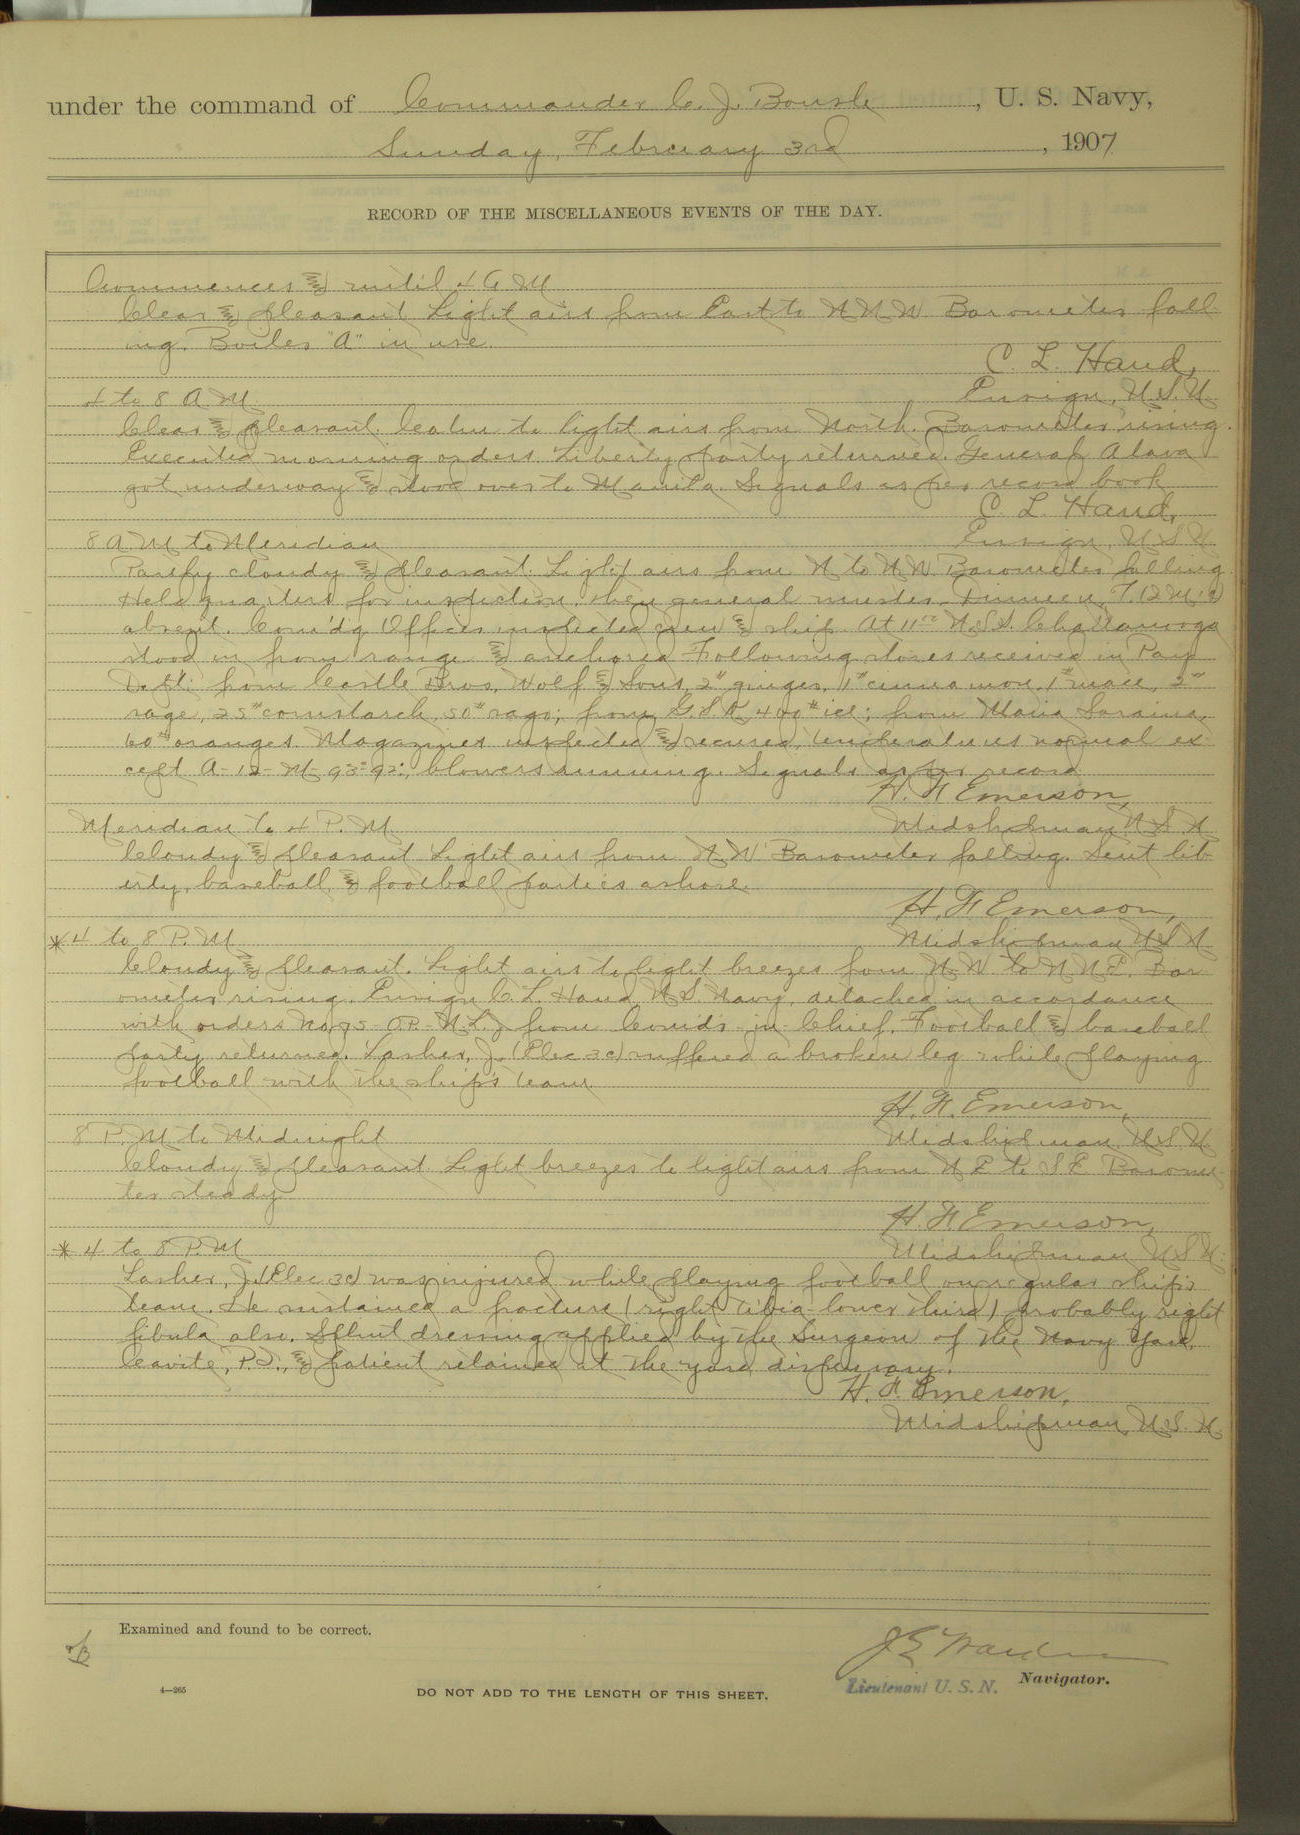 under the command of Commander C. J. Boush, U. S. Navy,
Sunday, February 3rd, 1907
RECORD OF THE MISCELLANEOUS EVENTS OF THE DAY.
Commences & until 4 A M
Clear & pleasant. Light airs from East to N N W Barometer fall
ing. Boiler "A" in use.
C. L. Hand,
Ensign, U.S.N
4 to 8 A M
Clear & pleasant. Calm to light airs from North. Barometer rising.
Executed morning orders. Liberty party returned. General Alava
got underway & stood over to Manila. Signals as per record book
C. L. Hand,
Ensign, U S N
8 A M to Meridian
Partly cloudy & pleasant. Light airs from N to N W. Barometer falling
Held quarters for inspection, then general muster.
absent. Com'd'g Officer inspected crew & ship. At 11 U.S.S. Chattanooga
stood in from range & anchored Following stores received in Pay
Dept: from Castle Bros, Wolf & Sons, 2# ginger, 1# cinnamon, 1# mace, 2#
sage, 25# cornstarch, 50# sago; from G.S.K. 400# ice; from Maria
60# oranges. Magazines inspected & secured, temperatures normal ex
cept A-12-M 93°-92°, blowers running. Signals as per record
H. F. Emerson,
Midshipman U S N
Meridian to 4 P. M
Cloudy & pleasant Light airs from N W Barometer falling. Sent lib
erty, baseball, & football parties ashore.
H. F. Emerson,
Midshipman U S N
* 4 to 8 P. M
Cloudy & pleasant. Light airs to light breezes from N W to N N E. Bar
ometer rising. Ensign C. L. Hand, U S. Navy, detached in accordance
with orders No. from Comdr. in Chief. Football & baseball
party returned. Lasher, J. (Elec 3c) suffered a broken leg while playing
football with the ship's team.
H. F. Emerson,
Midshipman U S N
8 P. M to Midnight
Cloudy & pleasant Light breezes to light airs from N E to S E Barome
ter steady
H. F. Emerson,
Midshipman U S N.
* 4 to 8 P. M
Lasher, J. (Elec 3c) was injured while playing football on regular ship's
team. He sustained a fracture (right tibia lower third) probably right
fibula also. Splint dressing applied by the Surgeon of the Navy Yard,
Cavite, P.I., & patient retained at the yard dispensary.
H. F. Emerson,
Midshipman, U. S. N
Examined and found to be correct.
Lieutenant U. S. N. Navigator.
4—265
DO NOT ADD TO THE LENGTH OF THIS SHEET.